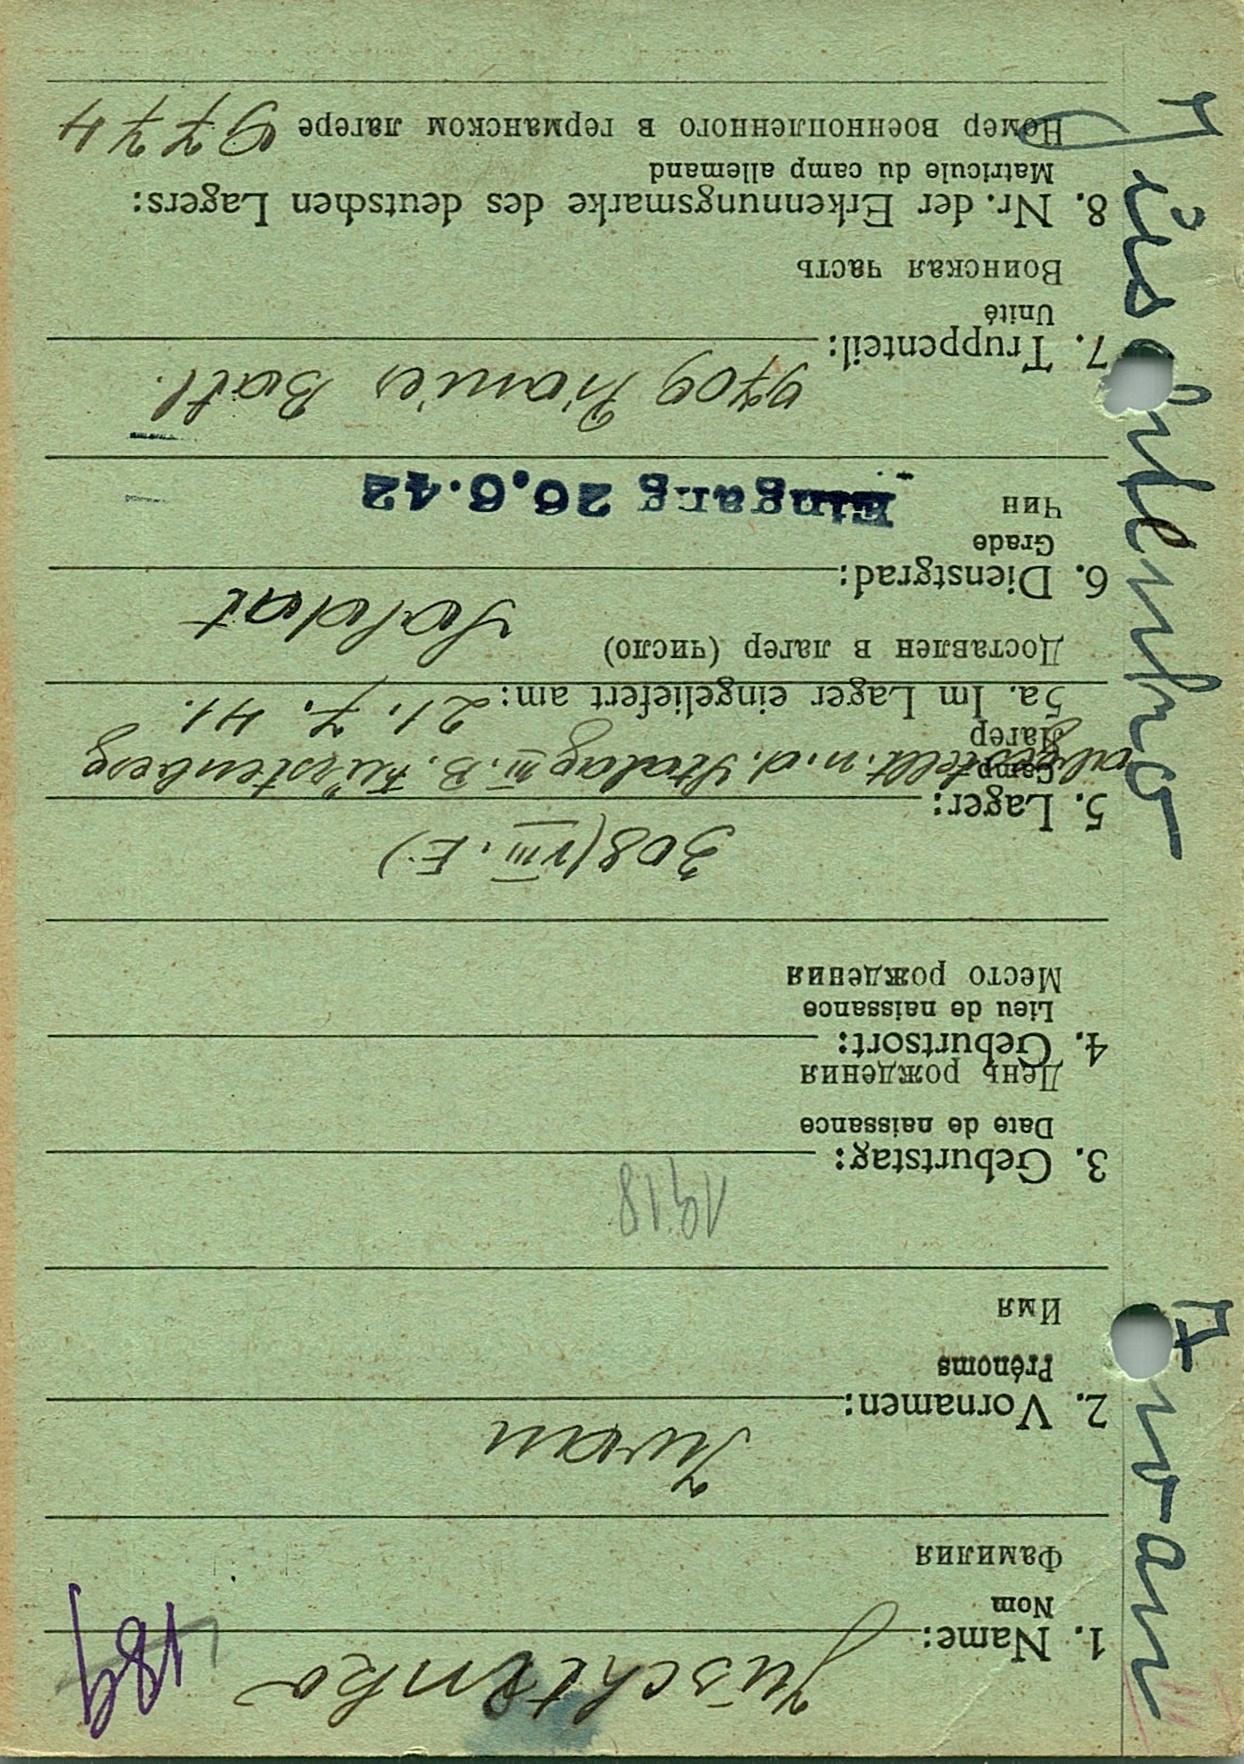 189
Juschtenko
1. Name:
Nom
Фамилия
Iwan
2. Vornamen:
Prénoms
Имя
1918
3. Geburtstag:
Date de naissance
День рождения
4. Geburtsort:
Lieu de naissance
Место рождения
308 (VIII. E)
5. Lager:
Camp
abgestellt. n. d. Stalag III. B. Fürstenberg
Лагерь
5a. Im Lager eingeliefert am: 21. 7. 41.
Доставлен в лагер (число)
Soldat
6. Dienstgrad:
Grade
Чин
Eingang 26.6.42
9709 Pionier Batl.
7. Truppenteil:
Unité
Воинская часть
8. Nr. der Erkennungsmarke des deutschen Lagers:
Matricule du camp allemand
Номер военнопленного в германском лагере 9774
Iwan